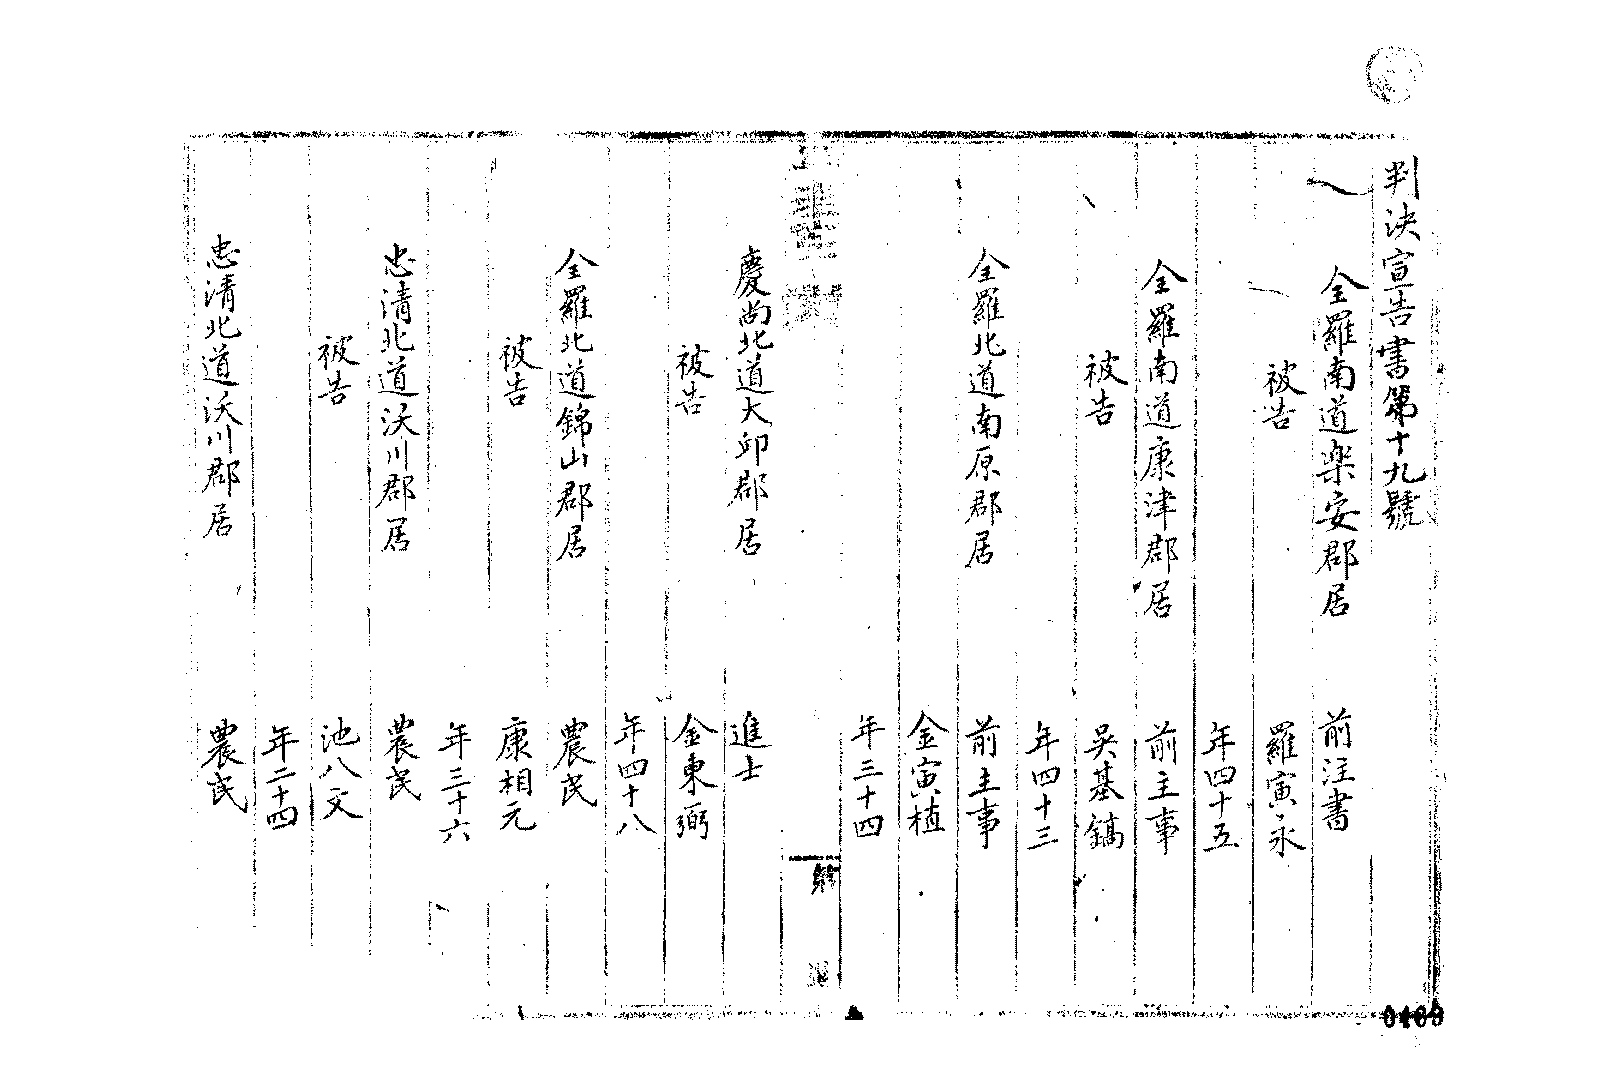 判決宣告書第十九號
全羅南道楽安郡居 前注書
被告 羅寅永
年四十五
全羅南道康津郡居 前主事
被告 吳基鎬
年四十三
全羅北道南原郡居 前主事
金寅植
年三十四
慶尚北道大邱郡居 進士
被告 金東弼
年四十八
全羅北道錦山郡居 農民
被告 康相元
年三十六
忠清北道沃川郡居 農民
被告 池八文
年二十四
忠清北道沃川郡居 農民